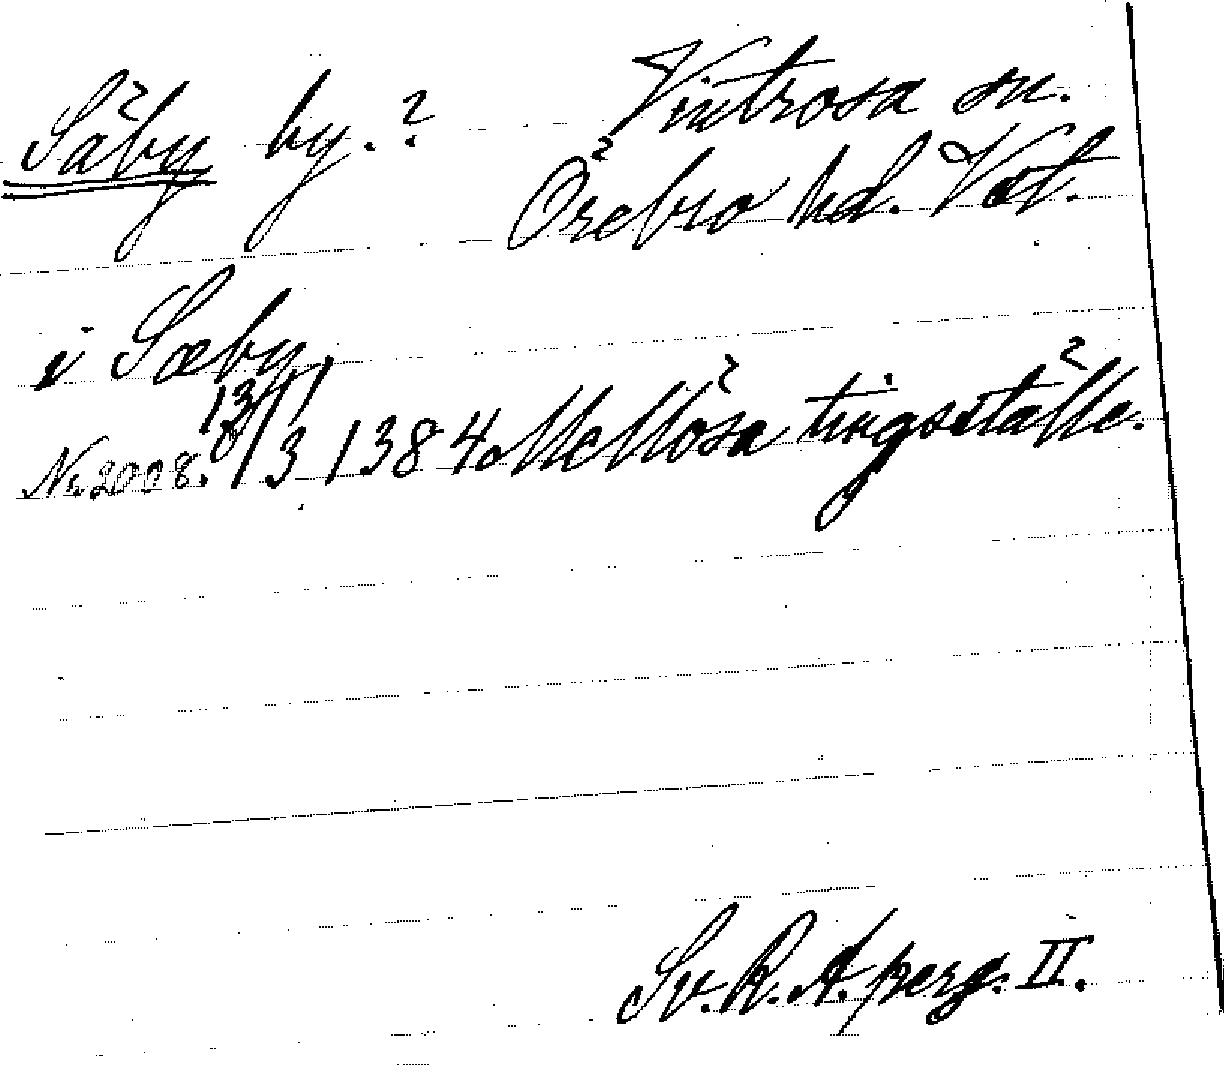 Säby by.? Vintrosa sn.
Örebro hd. Vstl.
i Sæby,
Nr 2008. 13/3 1384. Mellösa tingställe.
Sv. R. A. perg. II.